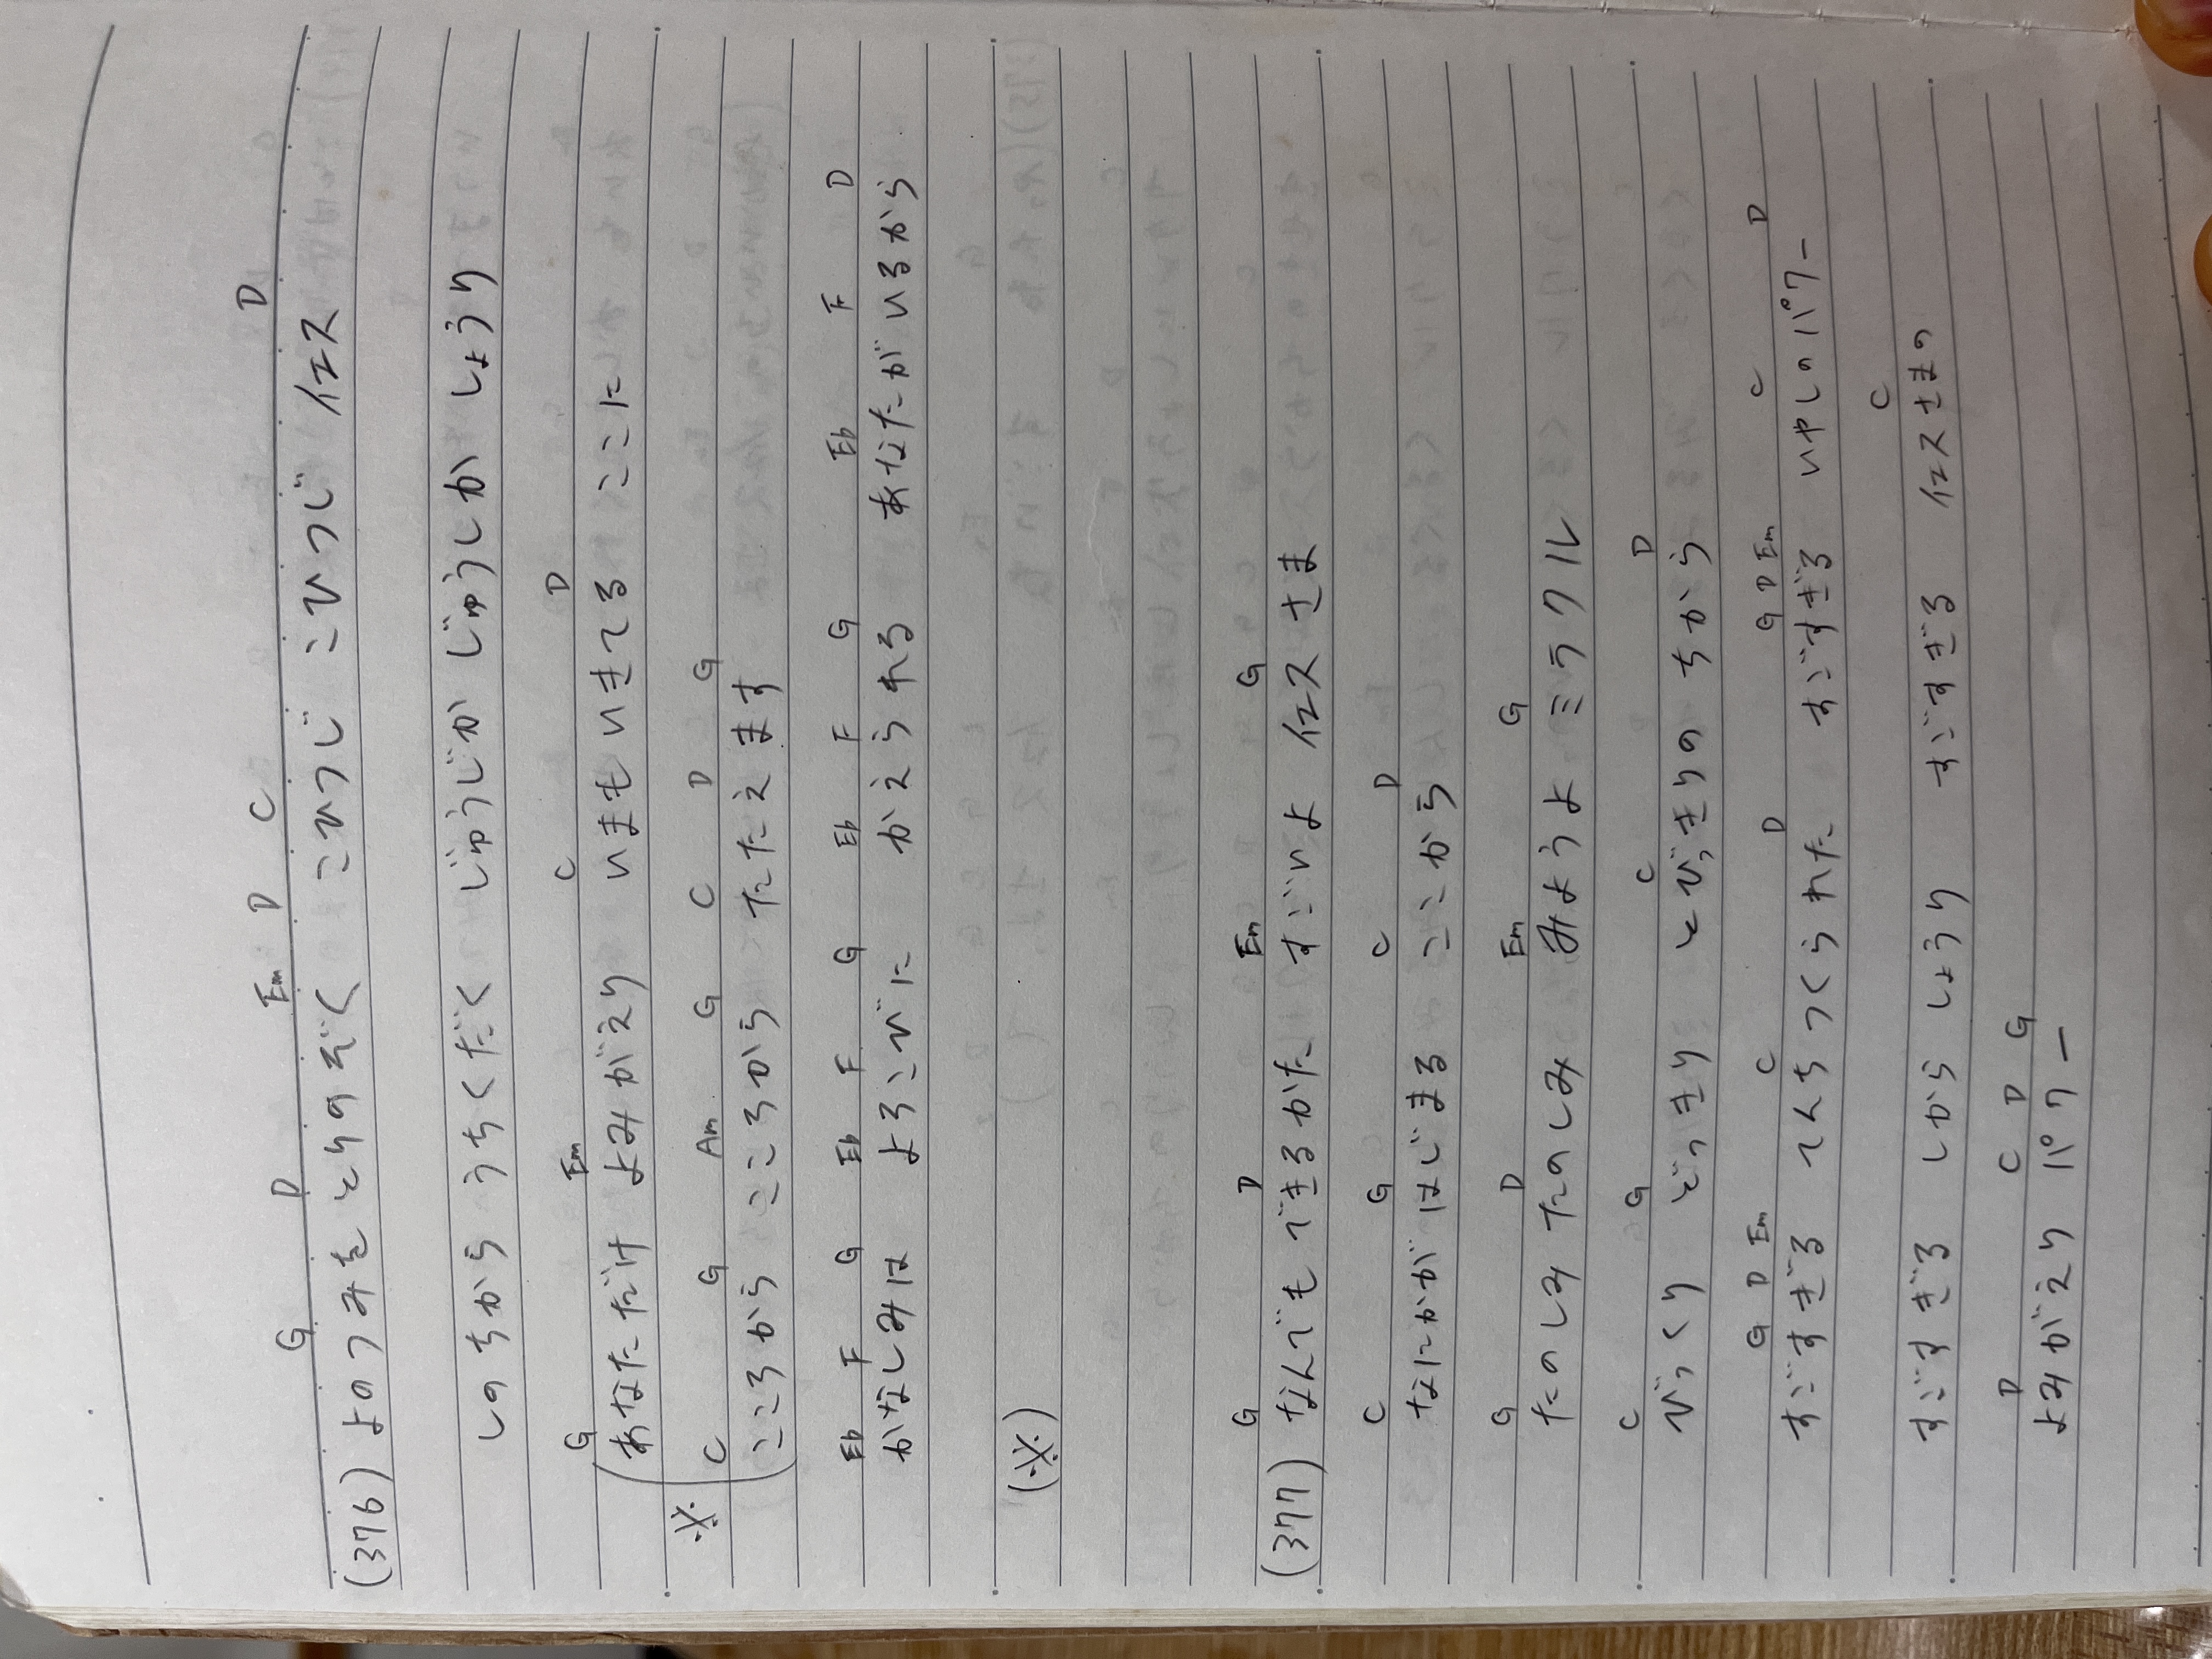 G D Em D C D
(376) よのつみを とりのぞく こひつじ こひつじ イエス
しのちから うちくだく じゅうじか じゅうじか しょうり
G Em C D
※(あなただけ よみがえり いまもいきてる ここに
C G Am G C D G
こころから こころから たたえます
Eb F G Eb F G Eb F G Eb F D
かなしみは よろこびに かえられる あなたがいるから
(※)
G D Em G
(377) なんでも できるかた すごいよ イエスさま
C G C D
なにかが はじまる ここから
G D Em G
たのしみ たのしみ みようよ ミラクル
C G C D
びっくり どっきり とびっきりの ちから
G D Em C D G D Em C D
すごすぎる てんちつくられた すごすぎる いやしのパワー
C
すごすぎる しからしょうり すごすぎる イエスさまの
D C D G
よみがえり パワー